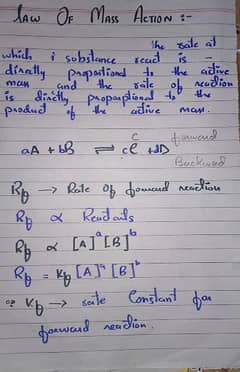 Law Of Mass Action :-
The rate at
which i substance react is -
directly proportional to the active
mass and the rate of reaction
is directly proportional to the
product of the active mass.
aA + bB ⇌ cC + dD
C
forward
Backward
Rf → Rate Of forward reaction
Rf ∝ Reactants
Rf ∝ [A]^a [B]^b
Rf = Kf [A]^a [B]^b
Kf → rate Constant for
forward reaction.